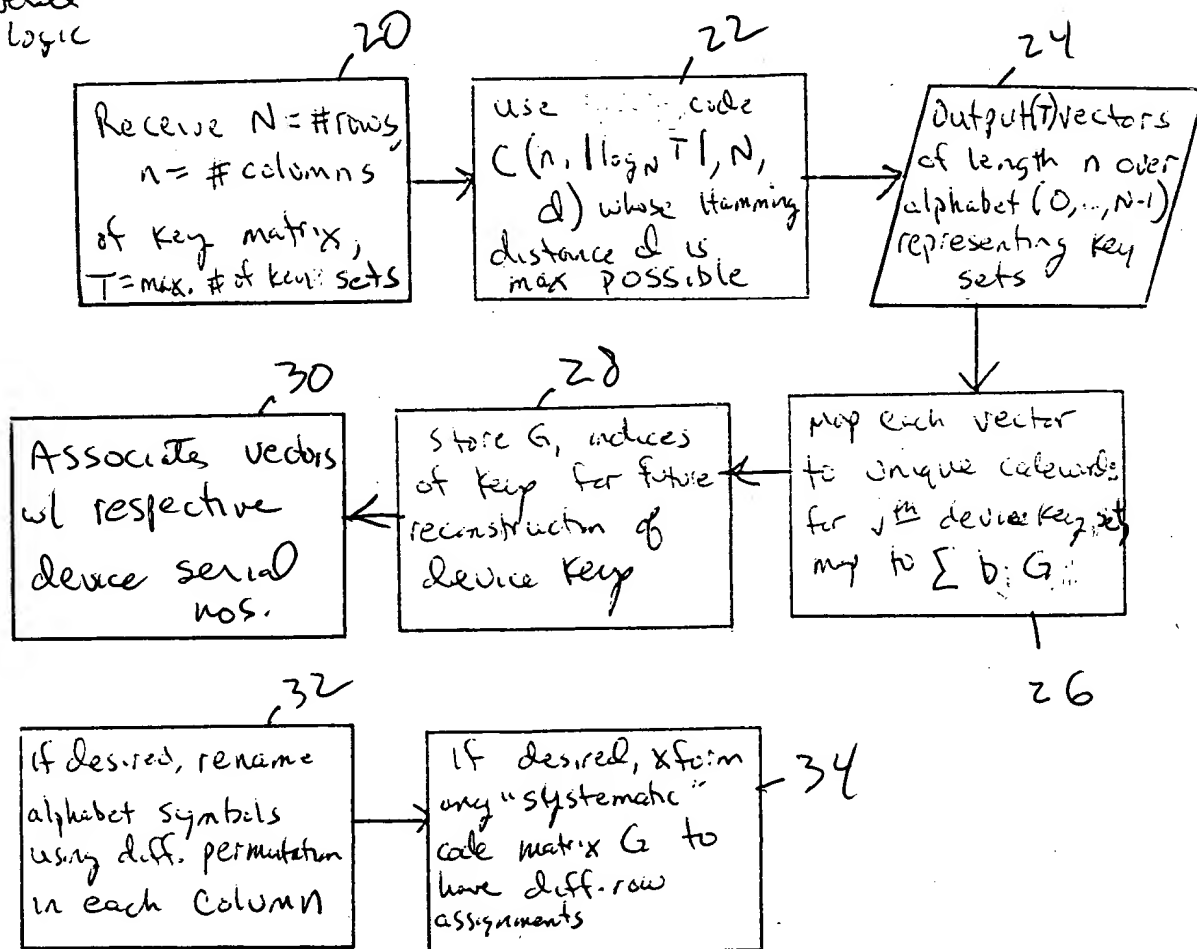 Logic
20
Receive N = #rows,
n = # columns
of key matrix,
T = max. # of key sets
22
use code
C (n, ⌈log_N T⌉, N,
d) whose Hamming
distance d is
max possible
24
Output (T) vectors
of length n over
alphabet (0, ..., N-1)
representing key
sets
Map each vector
to unique codeword:
for jth device key set,
map to ∑ b G
26
28
store G, indices
of keys for future
reconstruction of
device keys
30
Associate vectors
w/ respective
device serial
nos.
32
If desired, rename
alphabet symbols
using diff. permutation
in each column
If desired, xform
any "systematic"
code matrix G to
have diff. row
assignments
34